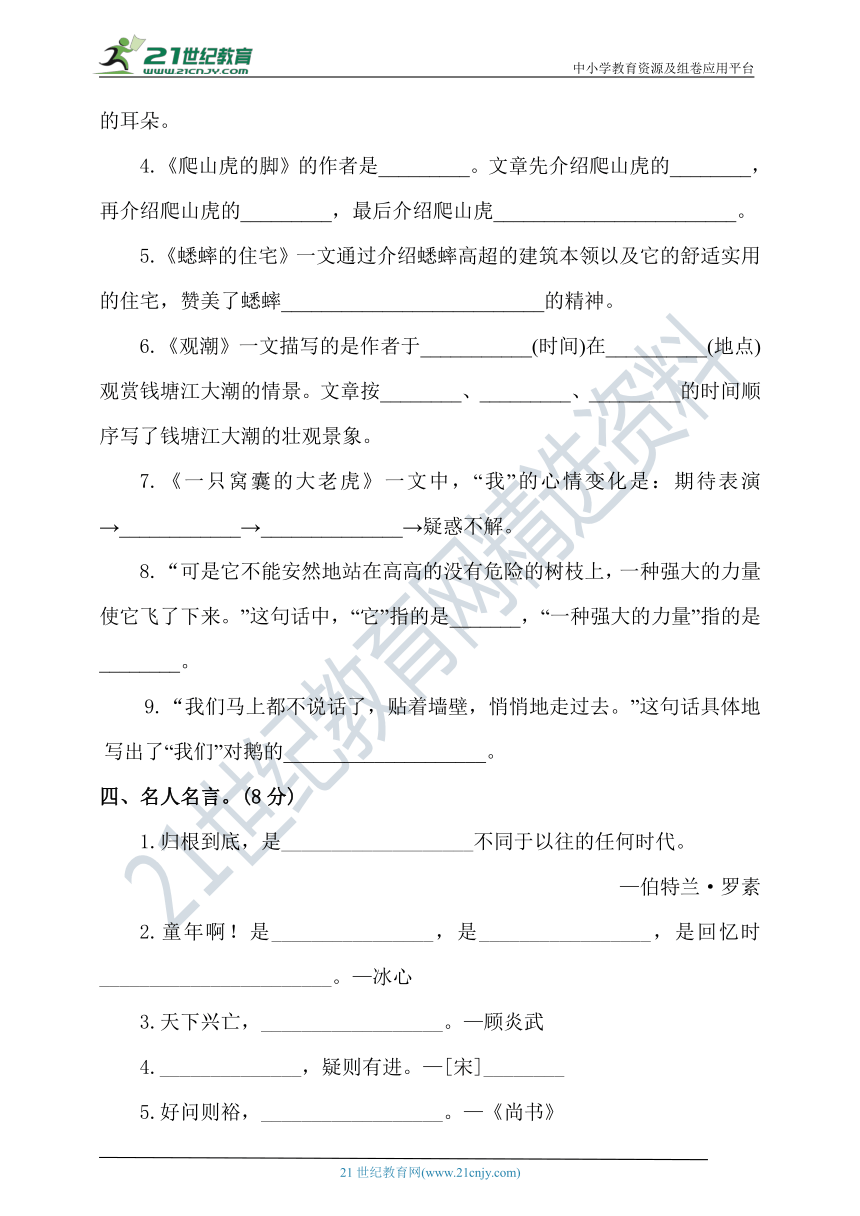 21世纪教育
WWW.21CNJY.COM
中小学教育资源及组卷应用平台
的耳朵。
4.《爬山虎的脚》的作者是_________。文章先介绍爬山虎的________，
再介绍爬山虎的_________，最后介绍爬山虎________________________。
5.《蟋蟀的住宅》一文通过介绍蟋蟀高超的建筑本领以及它的舒适实用
的住宅，赞美了蟋蟀__________________________的精神。
6.《观潮》一文描写的是作者于___________(时间)在__________(地点)
观赏钱塘江大潮的情景。文章按________、_________、_________的时间顺
序写了钱塘江大潮的壮观景象。
7.《一只窝囊的大老虎》一文中，“我”的心情变化是：期待表演
→____________→______________→疑惑不解。
8.“可是它不能安然地站在高高的没有危险的树枝上，一种强大的力量
使它飞了下来。”这句话中，“它”指的是_______，“一种强大的力量”指的是
________。
9.“我们马上都不说话了，贴着墙壁，悄悄地走过去。”这句话具体地
写出了“我们”对鹅的____________________。
四、名人名言。(8分)
1.归根到底，是___________________不同于以往的任何时代。
—伯特兰·罗素
2.童年啊！是________________，是_________________，是回忆时
_______________________。—冰心
3.天下兴亡，__________________。—顾炎武
4.______________，疑则有进。—[宋]________
5.好问则裕，__________________。—《尚书》
21世纪教育网(www.21cnjy.com)
21世纪教育网精选资料